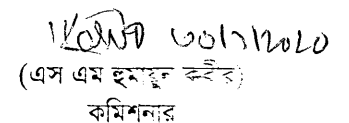 ৩০/১/২০২০
(এস এম হুমায়ুন কবীর)
কমিশনার